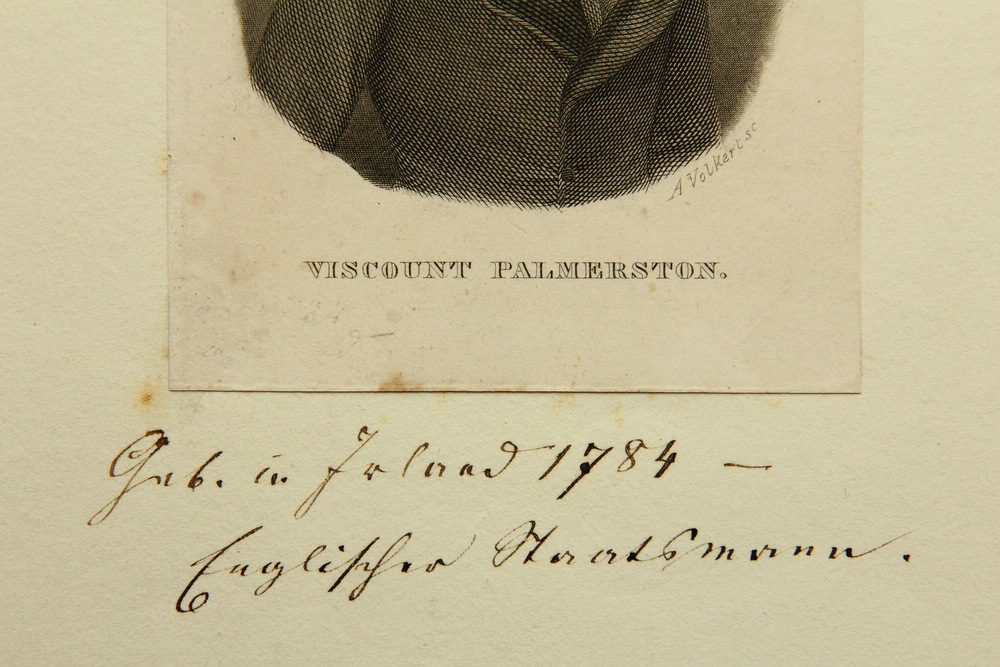 A Volkert sc
VISCOUNT PALMERSTON.
Geb. in Irland 1784 —
Englischer Staatsmann.